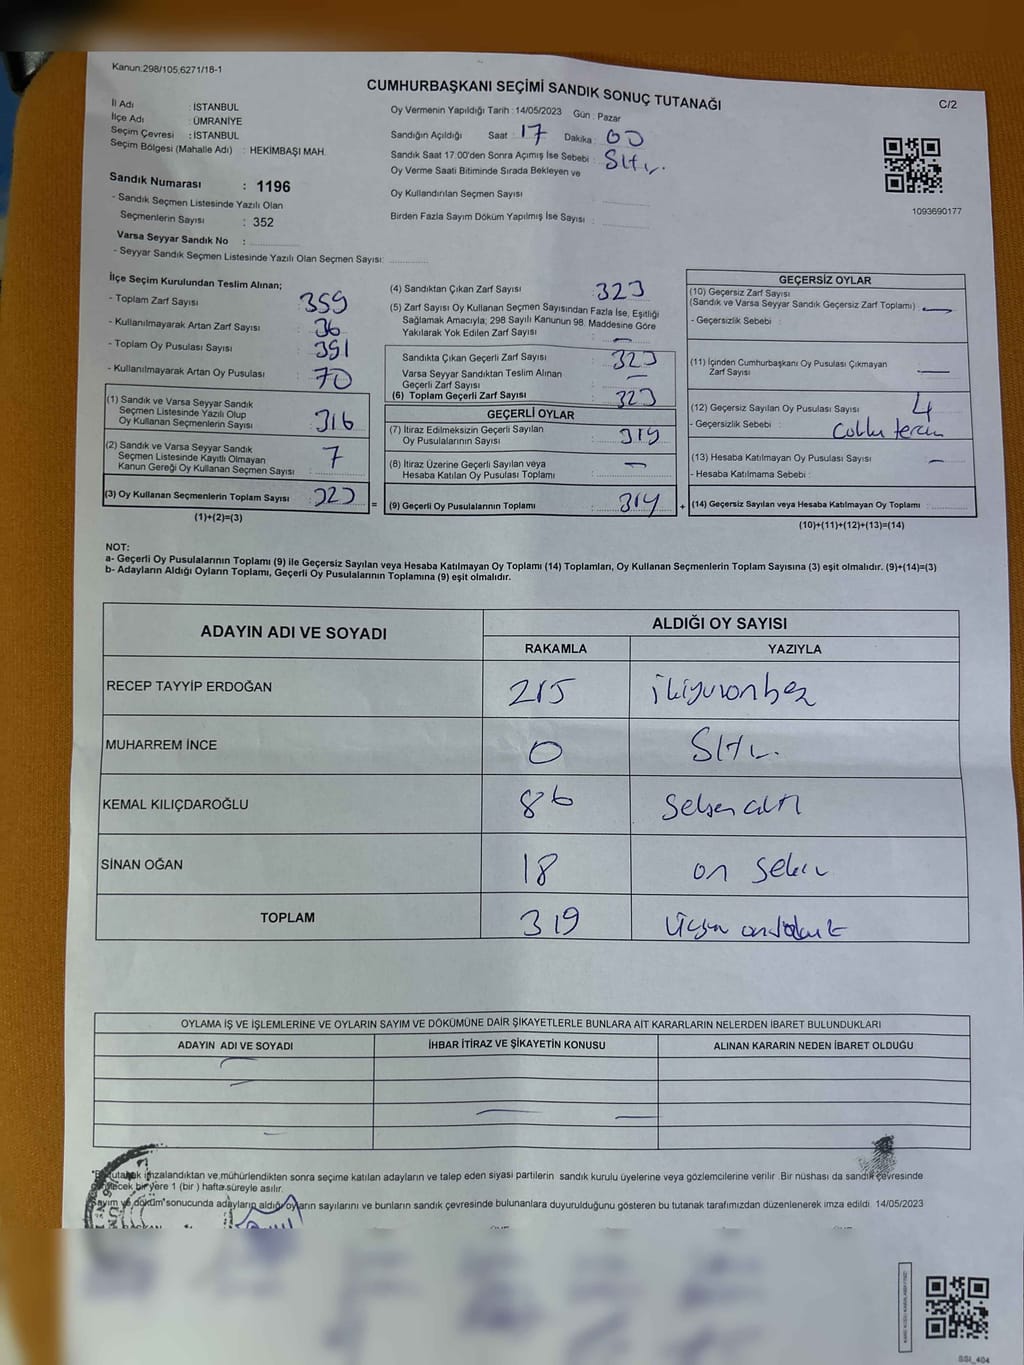 Kanun:298/105,6271/18-1
CUMHURBAŞKANI SEÇİMİ SANDIK SONUÇ TUTANAĞI
C/2
İl Adı : İSTANBUL
İlçe Adı : ÜMRANİYE
Seçim Çevresi : İSTANBUL
Seçim Bölgesi (Mahalle Adı) : HEKİMBAŞI MAH.
Sandık Numarası : 1196
- Sandık Seçmen Listesinde Yazılı Olan
Seçmenlerin Sayısı : 352
Varsa Seyyar Sandık No :
- Seyyar Sandık Seçmen Listesinde Yazılı Olan Seçmen Sayısı:
Oy Vermenin Yapıldığı Tarih : 14/05/2023 Gün : Pazar
Sandığın Açıldığı Saat : 17 Dakika : 00
Sandık Saat 17:00'den Sonra Açımış İse Sebebi : Sıfır
Oy Verme Saati Bitiminde Sırada Bekleyen ve
Oy Kullandırılan Seçmen Sayısı
Birden Fazla Sayım Döküm Yapılmış İse Sayısı :
1093690177
İlçe Seçim Kurulundan Teslim Alınan;
- Toplam Zarf Sayısı 359
- Kullanılmayarak Artan Zarf Sayısı 36
- Toplam Oy Pusulası Sayısı 391
- Kullanılmayarak Artan Oy Pusulası 70
(1) Sandık ve Varsa Seyyar Sandık
Seçmen Listesinde Yazılı Olup
Oy Kullanan Seçmenlerin Sayısı 316
(2) Sandık ve Varsa Seyyar Sandık
Seçmen Listesinde Kayıtlı Olmayan
Kanun Gereği Oy Kullanan Seçmen Sayısı 7
(3) Oy Kullanan Seçmenlerin Toplam Sayısı 323 =
(1)+(2)=(3)
(4) Sandıktan Çıkan Zarf Sayısı 323
(5) Zarf Sayısı Oy Kullanan Seçmen Sayısından Fazla İse, Eşitliği
Sağlamak Amacıyla; 298 Sayılı Kanunun 98. Maddesine Göre
Yakılarak Yok Edilen Zarf Sayısı : —
Sandıkta Çıkan Geçerli Zarf Sayısı 323
Varsa Seyyar Sandıktan Teslim Alınan
Geçerli Zarf Sayısı —
(6) Toplam Geçerli Zarf Sayısı 323
GEÇERLİ OYLAR
(7) İtiraz Edilmeksizin Geçerli Sayılan
Oy Pusulalarının Sayısı 319
(8) İtiraz Üzerine Geçerli Sayılan veya
Hesaba Katılan Oy Pusulası Toplamı —
(9) Geçerli Oy Pusulalarının Toplamı 319 +
GEÇERSİZ OYLAR
(10) Geçersiz Zarf Sayısı
(Sandık ve Varsa Seyyar Sandık Geçersiz Zarf Toplamı) —
- Geçersizlik Sebebi :
(11) İçinden Cumhurbaşkanı Oy Pusulası Çıkmayan
Zarf Sayısı —
(12) Geçersiz Sayılan Oy Pusulası Sayısı 4
- Geçersizlik Sebebi :
(13) Hesaba Katılmayan Oy Pusulası Sayısı —
- Hesaba Katılmama Sebebi :
(14) Geçersiz Sayılan veya Hesaba Katılmayan Oy Toplamı :
(10)+(11)+(12)+(13)=(14)
NOT:
a- Geçerli Oy Pusulalarının Toplamı (9) ile Geçersiz Sayılan veya Hesaba Katılmayan Oy Toplamı (14) Toplamları, Oy Kullanan Seçmenlerin Toplam Sayısına (3) eşit olmalıdır. (9)+(14)=(3)
b- Adayların Aldığı Oyların Toplamı, Geçerli Oy Pusulalarının Toplamına (9) eşit olmalıdır.
ADAYIN ADI VE SOYADI
ALDIĞI OY SAYISI
RAKAMLA YAZIYLA
RECEP TAYYİP ERDOĞAN 215 ikiyüzonbeş
MUHARREM İNCE 0 Sıfır
KEMAL KILIÇDAROĞLU 86 Seksen altı
SİNAN OĞAN 18 on sekiz
TOPLAM 319 Üçyüz ondokuz
OYLAMA İŞ VE İŞLEMLERİNE VE OYLARIN SAYIM VE DÖKÜMÜNE DAİR ŞİKAYETLERLE BUNLARA AİT KARARLARIN NELERDEN İBARET BULUNDUKLARI
ADAYIN ADI VE SOYADI İHBAR İTİRAZ VE ŞİKAYETİN KONUSU ALINAN KARARIN NEDEN İBARET OLDUĞU
imzalandıktan ve mühürlendikten sonra seçime katılan adayların ve talep eden siyasi partilerin sandık kurulu üyelerine veya gözlemcilerine verilir. Bir nüshası da sandık çevresinde
bir yere 1 (bir ) hafta süreyle asılır.
ve döküm sonucunda adayların aldığı oyların sayılarını ve bunların sandık çevresinde bulunanlara duyurulduğunu gösteren bu tutanak tarafımızdan düzenlenerek imza edildi. 14/05/2023
SSI_404